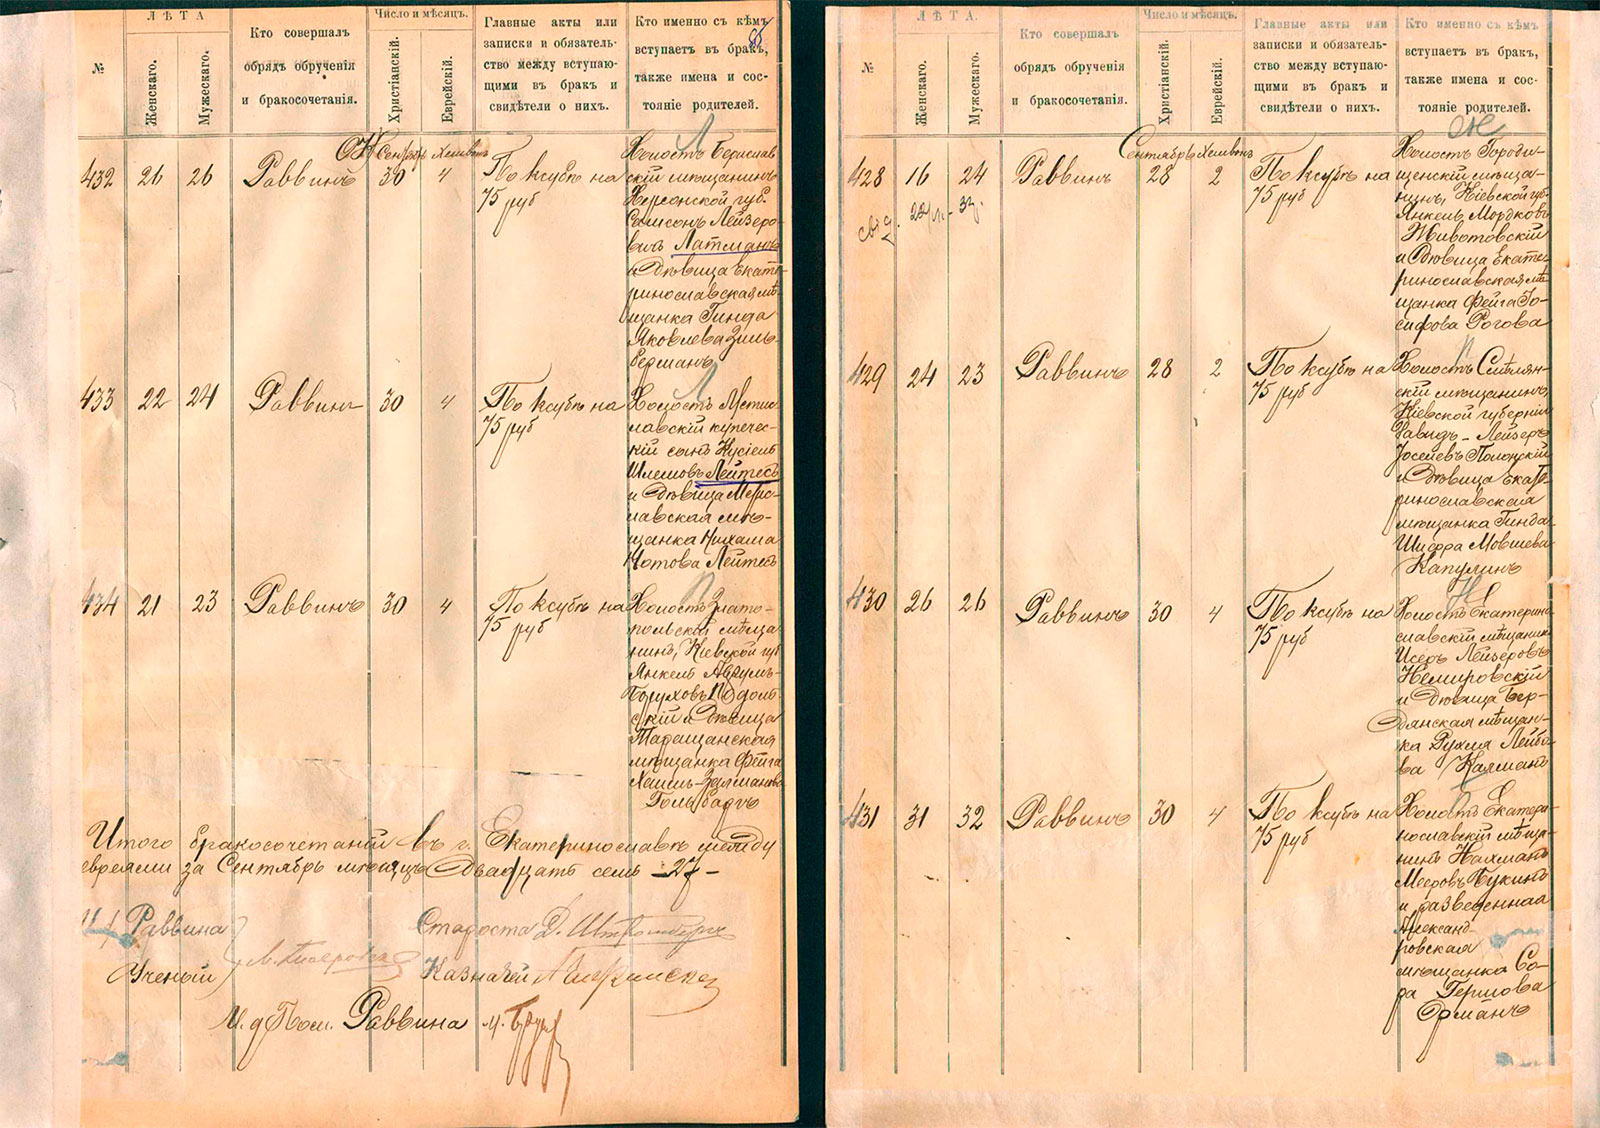 №
ЛѢТА
Женскаго.
Мужескаго.
Кто совершалъ
обрядъ обрученія
и бракосочетанія.
Число и мѣсяцъ.
Христіанскій.
Еврейскій.
Главные акты или
записки и обязатель-
ство между вступаю-
щими въ бракъ и
свидѣтели о нихъ.
Кто именно съ кѣмъ
вступаетъ въ бракъ,
также имена и сос-
тояніе родителей.
Сентябрь Хешванъ
432 26 26 Раввинъ 30 4 По ксубѣ на
75 руб
Холостъ Берислав
скій мѣщанинъ
Херсонской губ.
Самсонъ Лейзеро-
вичъ Латманъ
и Дѣвица Екате-
ринославская мѣ-
щанка Гинда
Яковлева Зиль-
берманъ
433 22 24 Раввинъ 30 4 По ксубѣ на
75 руб
Холостъ Мстис-
лавскій купечес-
кій сынъ Кусіелъ
Шлемовъ Лейтесъ
и Дѣвица Мстис-
лавская мѣ-
щанка Нихама
Нотова Лейтесъ
434 21 23 Раввинъ 30 4 По ксубѣ на
75 руб
Холостъ Злато-
польскій мѣща-
нинъ, Кіевской губ
Янкель Аврумъ-
Боруховъ Подоль-
скій и Дѣвица
Таращанская
мѣщанка Фейга
Гольбадтъ
Итого бракосочетаній въ г. Екатеринославѣ между
евреями за Сентябрь мѣсяцъ Двадцать семь -27-
Раввина
Ученый
Староста Д. Штромберг
Казначей
И. д Пом. Раввина
№
ЛѢТА.
Женскаго.
Мужескаго.
Кто совершалъ
обрядъ обрученія
и бракосочетанія.
Число и мѣсяцъ.
Христіанскій.
Еврейскій.
Главные акты или
записки и обязатель-
ство между вступаю-
щими въ бракъ и
свидѣтели о нихъ.
Кто именно съ кѣмъ
вступаетъ въ бракъ,
также имена и сос-
тояніе родителей.
Ж
Сентябрь Хешванъ
428 16 24 Раввинъ 28 2 По ксубѣ на
75 руб
Холостъ Городи-
щенскій мѣща-
нинъ, Кіевской губ.
Янкель Мордковъ
Животовскій
и Дѣвица Екате-
ринославская мѣ-
щанка Фейга Іо-
сифова Рогова
429 24 23 Раввинъ 28 2 По ксубѣ на
75 руб
Холостъ Смѣлян-
скій мѣщанинъ,
Кіевской губерніи
Давидъ-Лейзеръ
Іосевъ Полонскій
и Дѣвица Екате-
ринославская
мѣщанка Гинда-
Шифра Мовшева
Капулинъ
430 26 26 Раввинъ 30 4 По ксубѣ на
75 руб
Н
Холостъ Екатерино-
славскій мѣщанинъ
Исеръ Лейзеровъ
Немировскій
и Дѣвица Бер-
дянская мѣщан-
ка Рухля Лейбо-
ва Калманъ
431 31 32 Раввинъ 30 4 По ксубѣ на
75 руб
Холостъ Екатери-
нославскій мѣща-
нинъ Нахманъ
Мееровъ Букинъ
и разведенная
Александ-
ровская
мѣщанка Са-
ра Гершова
Орманъ